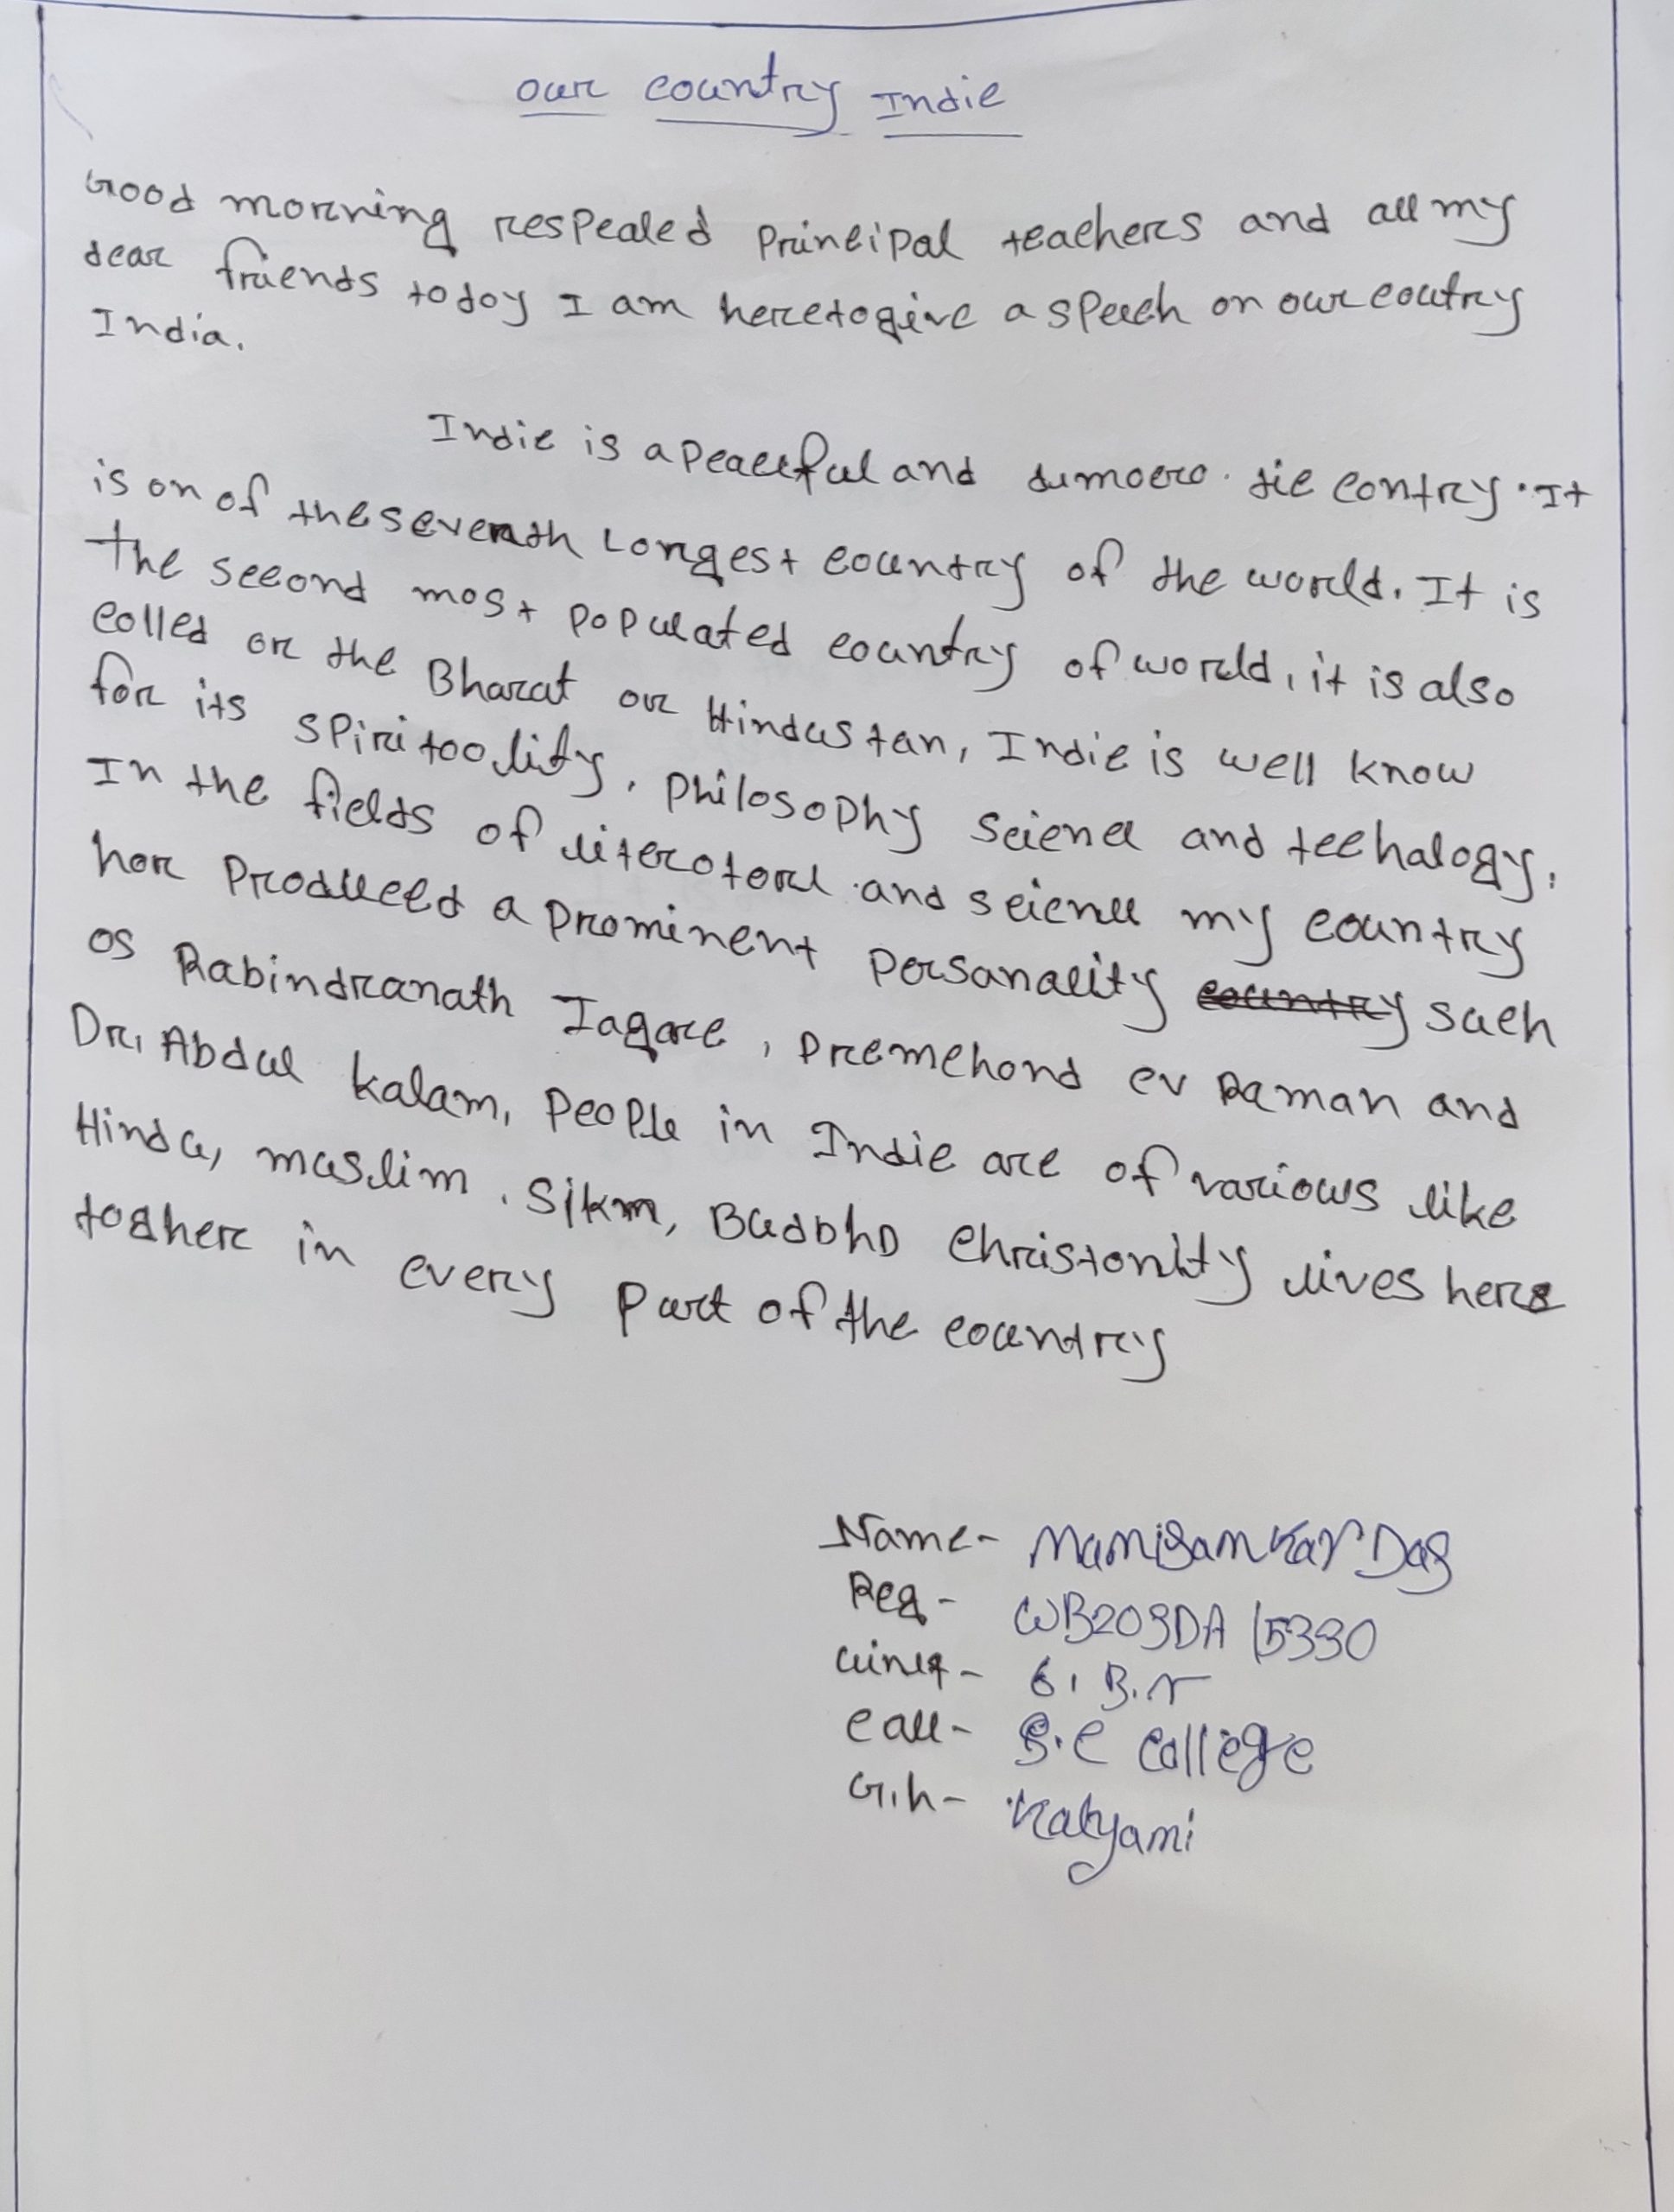 our country Indie
Good morning respealed principal teachers and all my
dear friends today I am here to give a speech on our coutry
India.
Indie is a peaceful and dumocro. tie contry. It
is on of the seventh Longest country of the world. It is
the second most populated country of world, it is also
colled or the Bharat or Hindustan, Indie is well know
for its spiritoolity, philosophy science and techalogy,
In the fields of literotore and science my country
hor produced a prominent personality such
os Rabindranath Tagore, premchond cv Raman and
Dr, Abdul kalam, people in Indie are of various like
Hindu, muslim, Sikm, Buddho christonity lives here
togher in every part of the country
Name- Manisankar Das
Reg- WB20SDA 15330
6, B.N
Call- S.C College
G.h- Kalyani